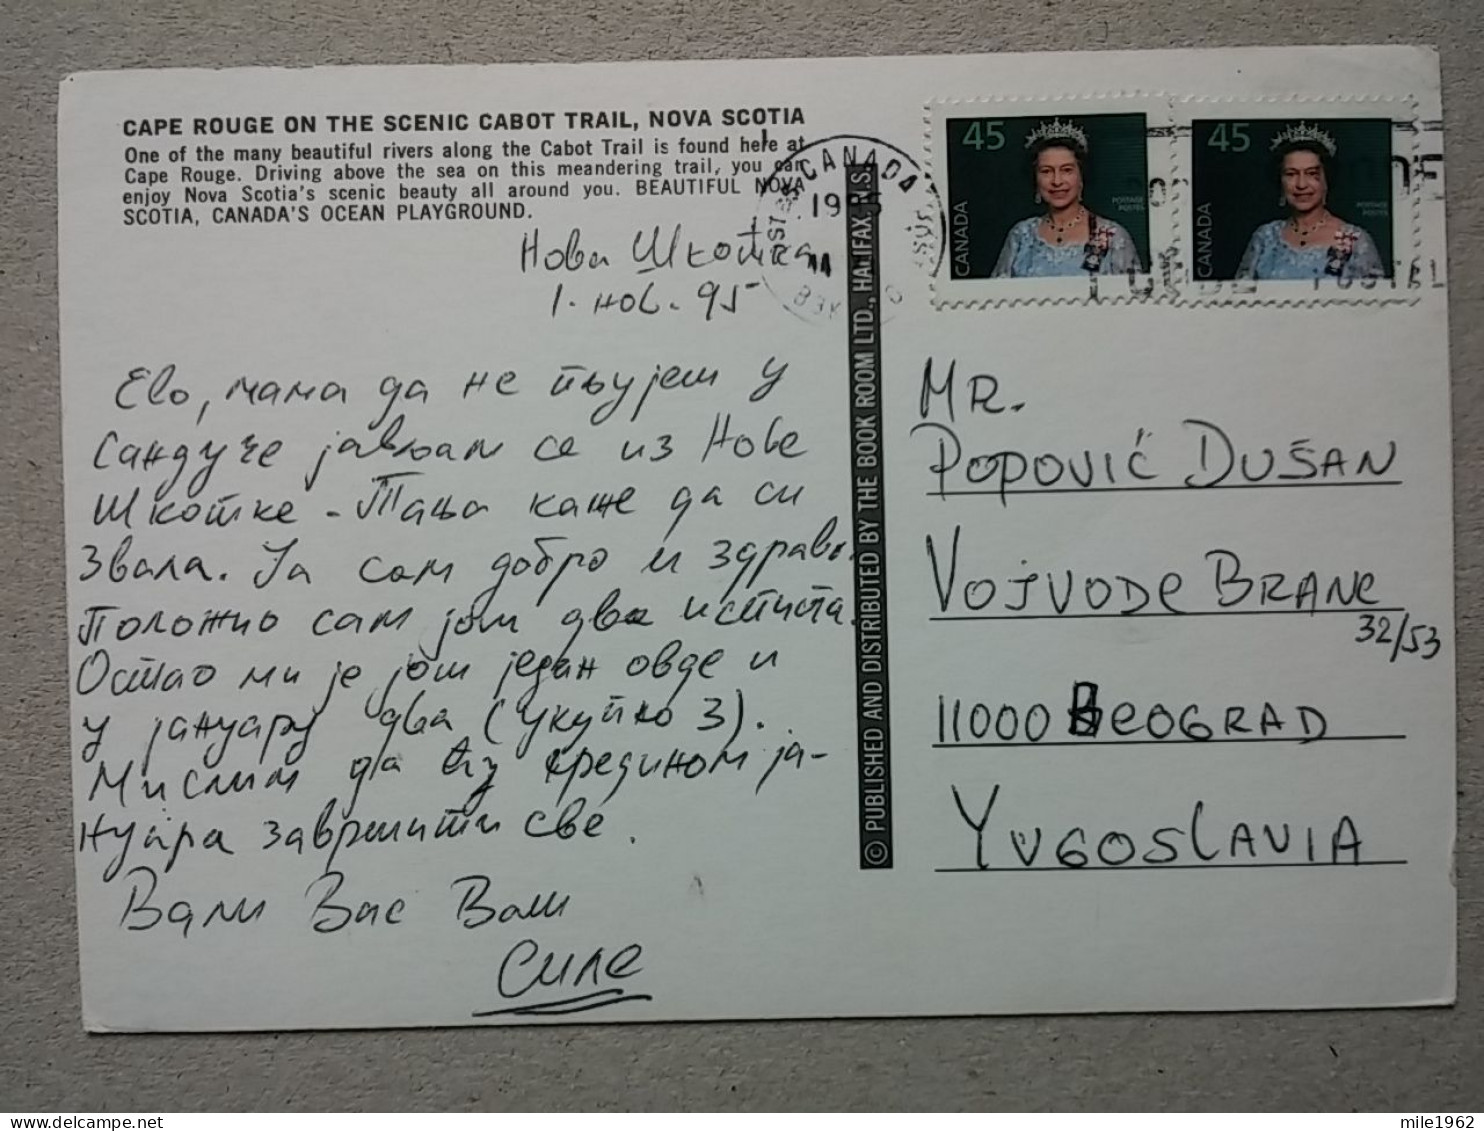 CAPE ROUGE ON THE SCENIC CABOT TRAIL, NOVA SCOTIA
One of the many beautiful rivers along the Cabot Trail is found here at
Cape Rouge. Driving above the sea on this meandering trail, you can
enjoy Nova Scotia's scenic beauty all around you. BEAUTIFUL NOVA
SCOTIA, CANADA'S OCEAN PLAYGROUND.
Нова Шкотска
1. нов. 95
Ево, мама да не пљујеш у
сандуче јављам се из Нове
Шкотске - Тања каже да си
звала. Ја сам добро и здраво.
Положио сам још два испита.
Остао ми је још један овде и
у јануару два (укупно 3).
Мислим да ћу средином ја-
нуара завршити све.
Воли Вас Ваш
Силе
© PUBLISHED AND DISTRIBUTED BY THE BOOK ROOM LTD., HALIFAX, N.S.
CANADA
1995
45
CANADA
POSTAGE
POSTES
45
CANADA
POSTAGE
POSTES
POSTAL
MR.
POPOVIĆ DUŠAN
VOJVODE BRANE
32/53
11000 BEOGRAD
YUGOSLAVIA
mile1962